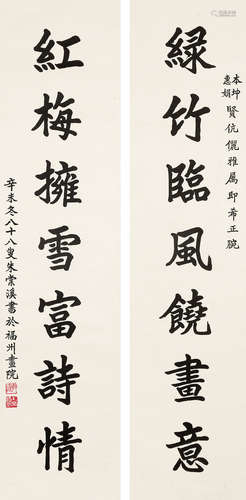 本坤
惠娟
賢伉儷雅屬即希正腕
綠竹臨風饒畫意
紅梅擁雪富詩情
辛未冬八十八叟朱棠溪書於福州畫院